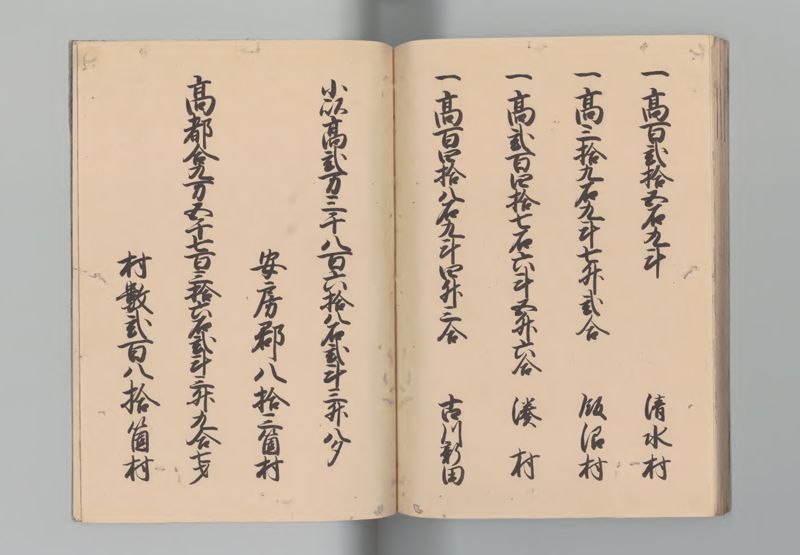 一高百弐拾五石九斗 清水村
一高三拾九石九斗七升弐合 飯沼村
一高弐百四拾七石六斗五升六合 湊村
一高百四拾八石九斗四升三合 古川新田
小以高弐万三千八百六拾八石弐斗三升八夕
安房郡八拾三箇村
高都合九万五千七百三拾六石弐斗三升九合七夕
村数弐百八拾箇村